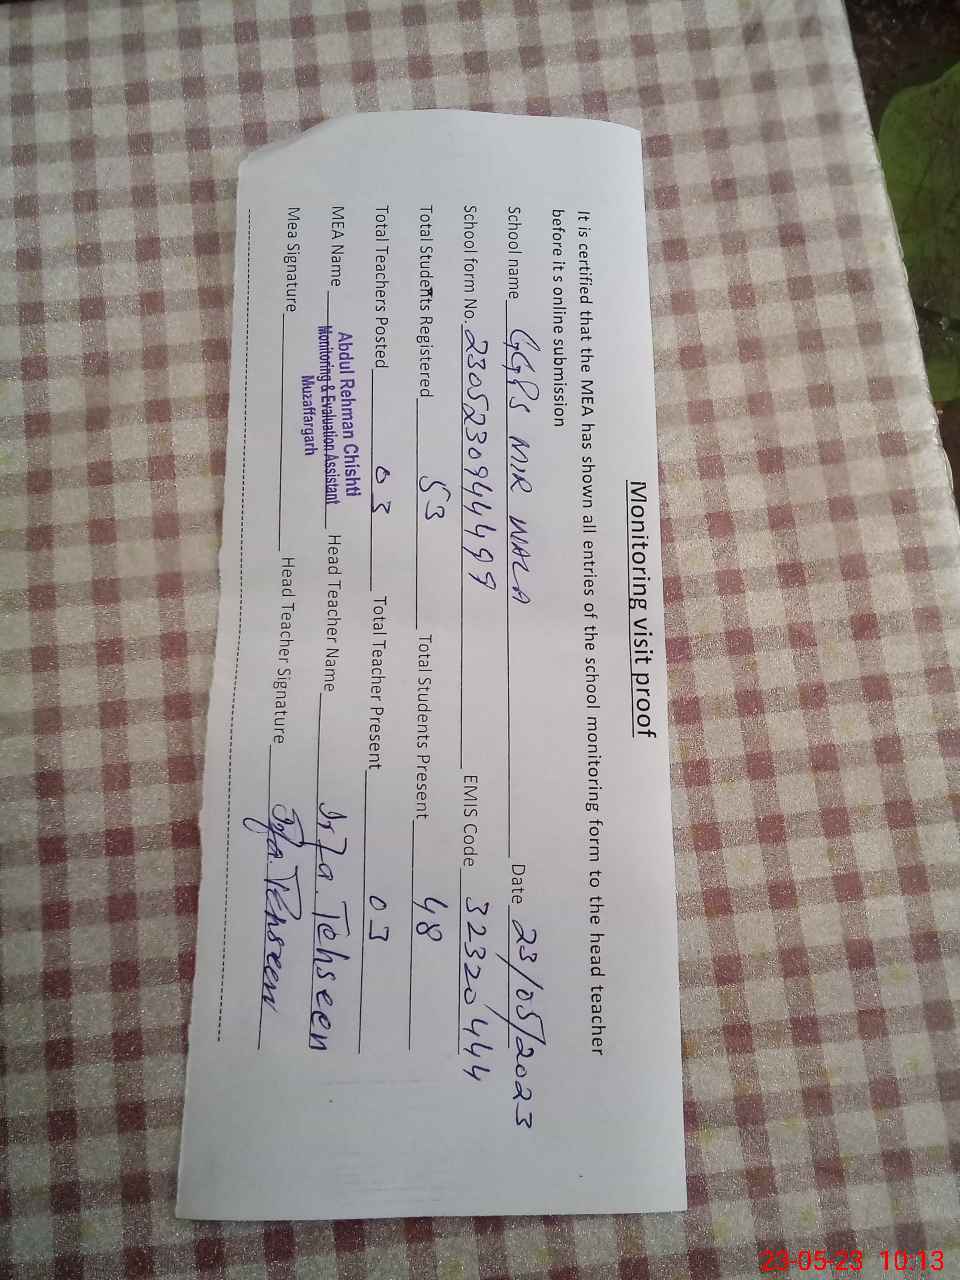 Monitoring visit proof
It is certified that the MEA has shown all entries of the school monitoring form to the head teacher
before it s online submission
School name GGPS MIR WALA Date 23/05/2023
School form No. 230523094449 9 EMIS Code 32320444
Total Students Registered 53 Total Students Present 48
Total Teachers Posted 03 Total Teacher Present 03
MEA Name Abdul Rehman Chishti Head Teacher Name Irfa. Tehseen
Monitoring & Evaluation Assistant
Muzaffargarh
Mea Signature Head Teacher Signature Irfa. Tehseen
23-05-23 10:13